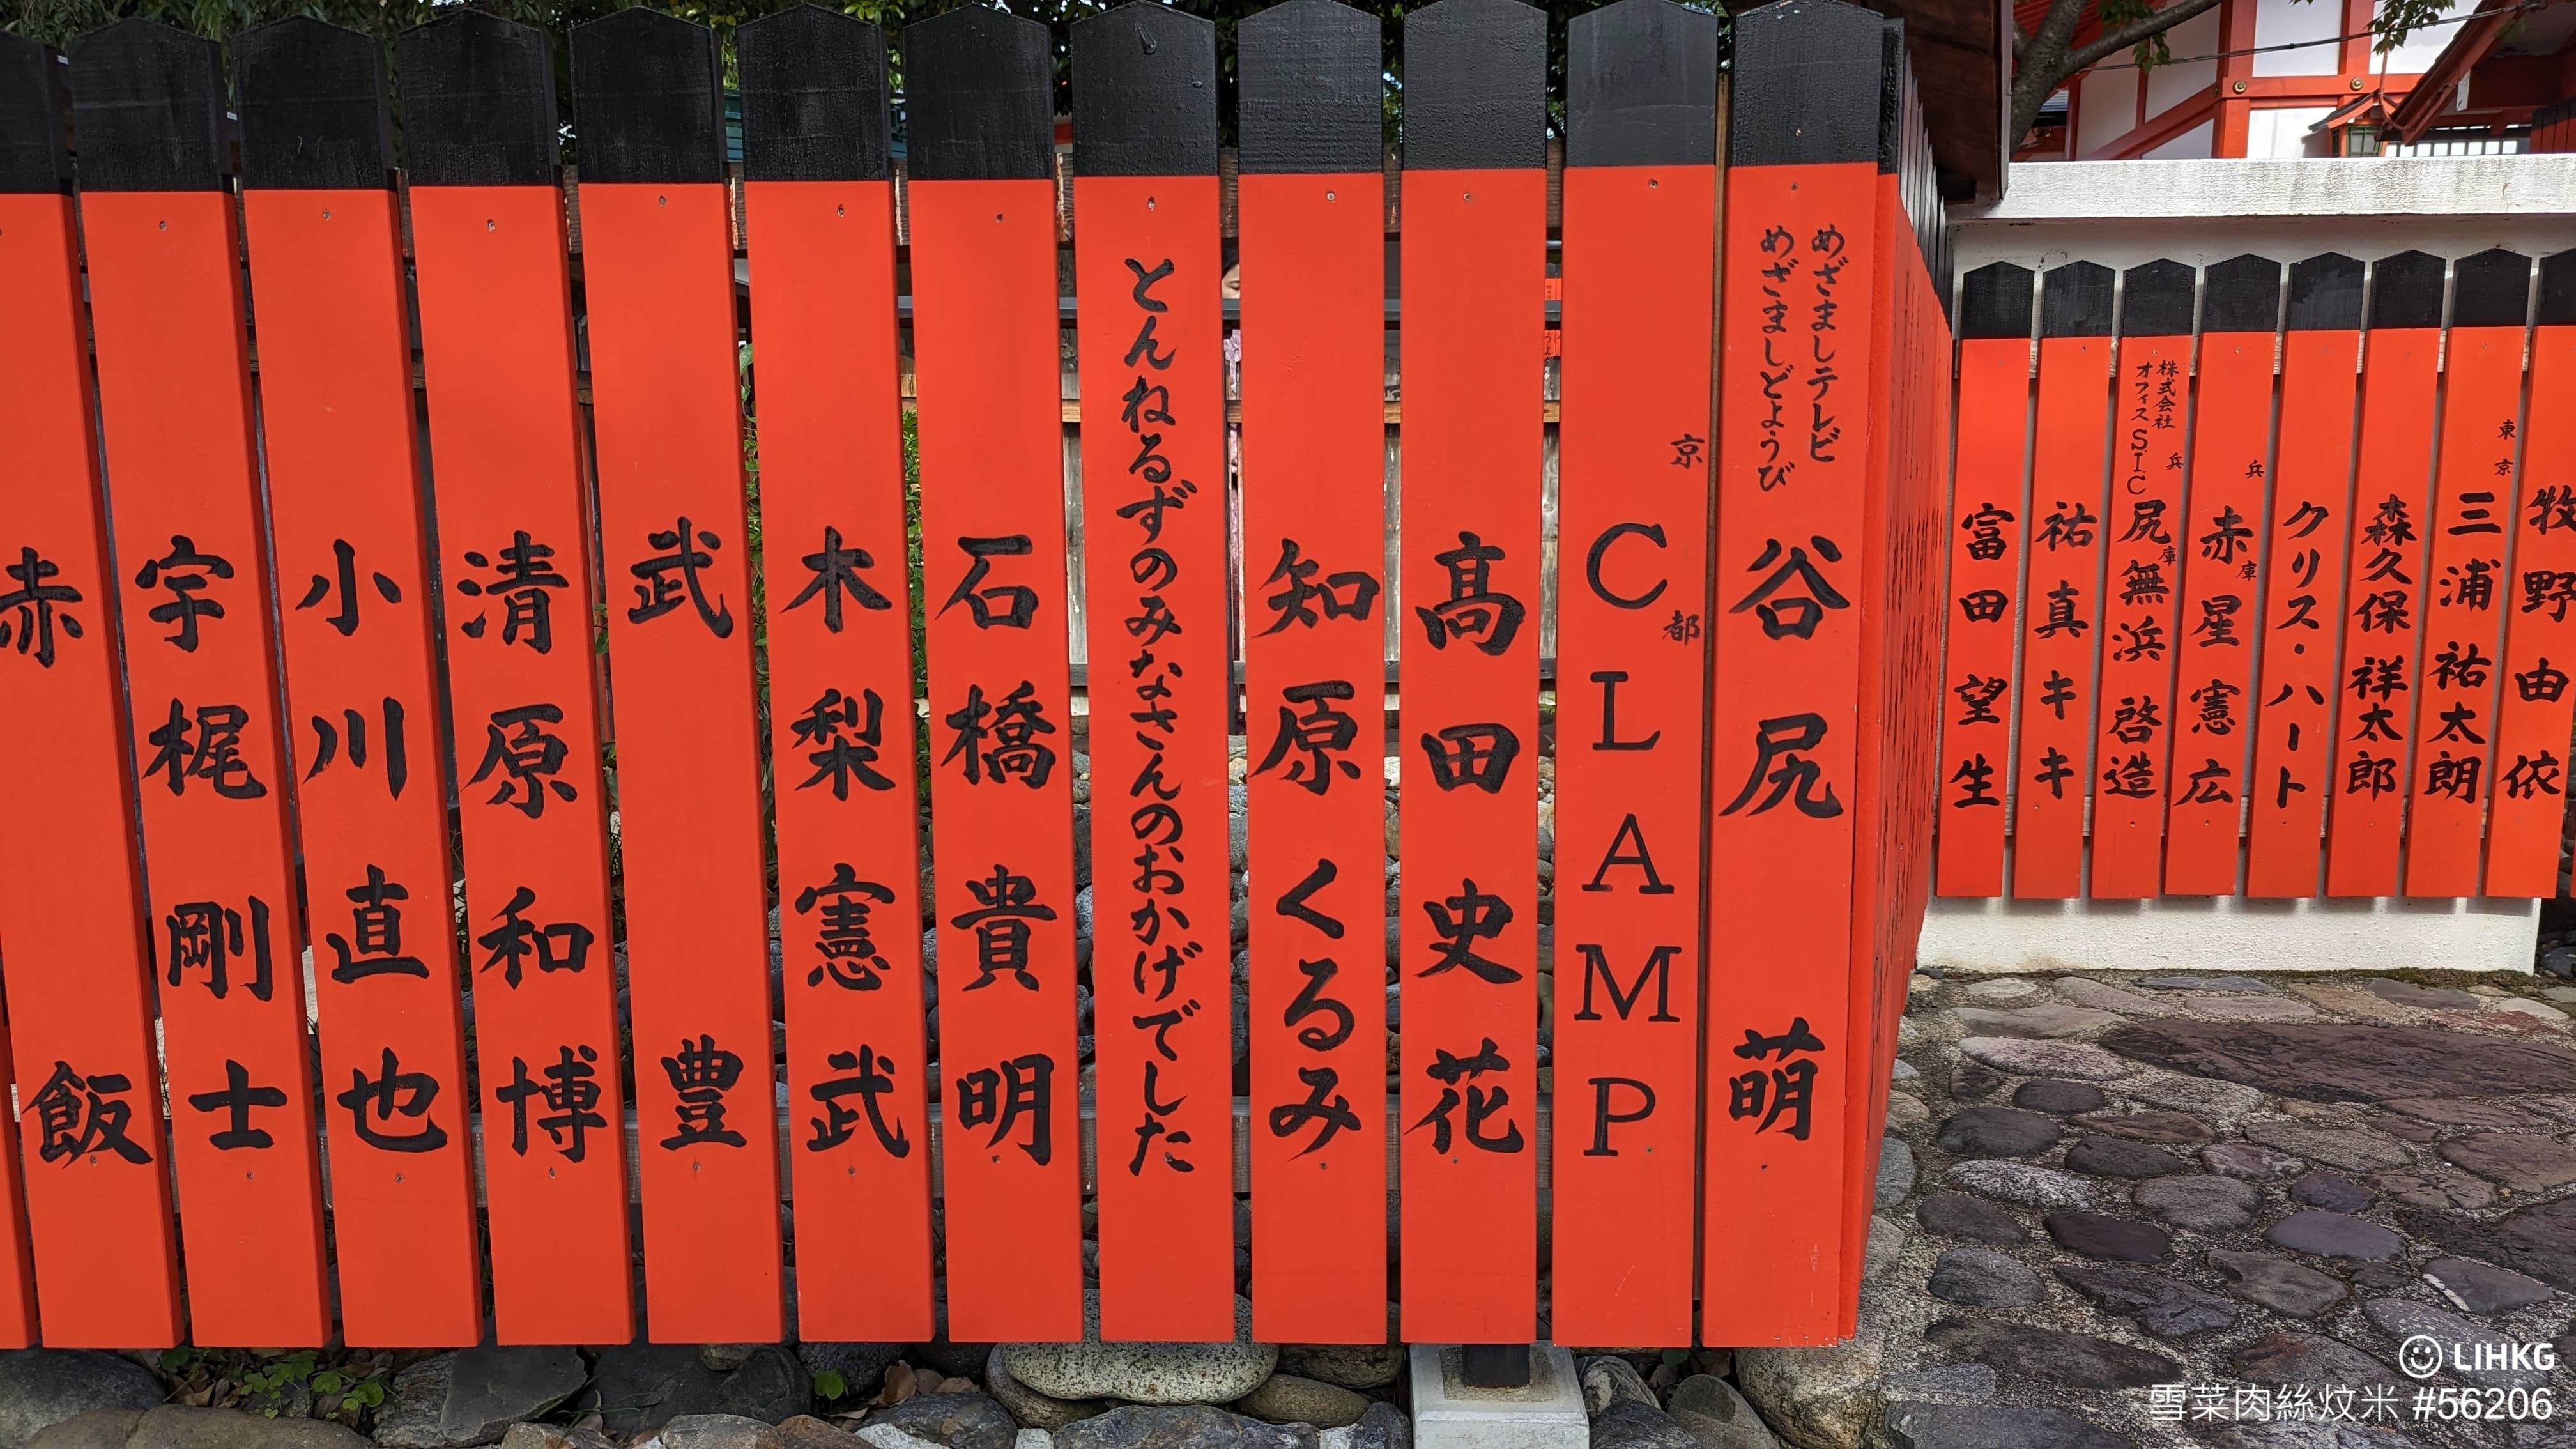 赤飯
宇梶剛士
小川直也
清原和博
武豊
木梨憲武
石橋貴明
とんねるずのみなさんのおかげでした
知原くるみ
髙田史花
京都
CLAMP
めざましテレビ
めざましどようび
谷尻萌
富田望生
祐真キキ
株式会社
オフィスSIC
兵庫
尻無浜啓造
兵庫
赤星憲広
クリス・ハート
森久保祥太郎
東京
三浦祐太朗
牧野由依
LIHKG
雪菜肉絲炆米 #56206